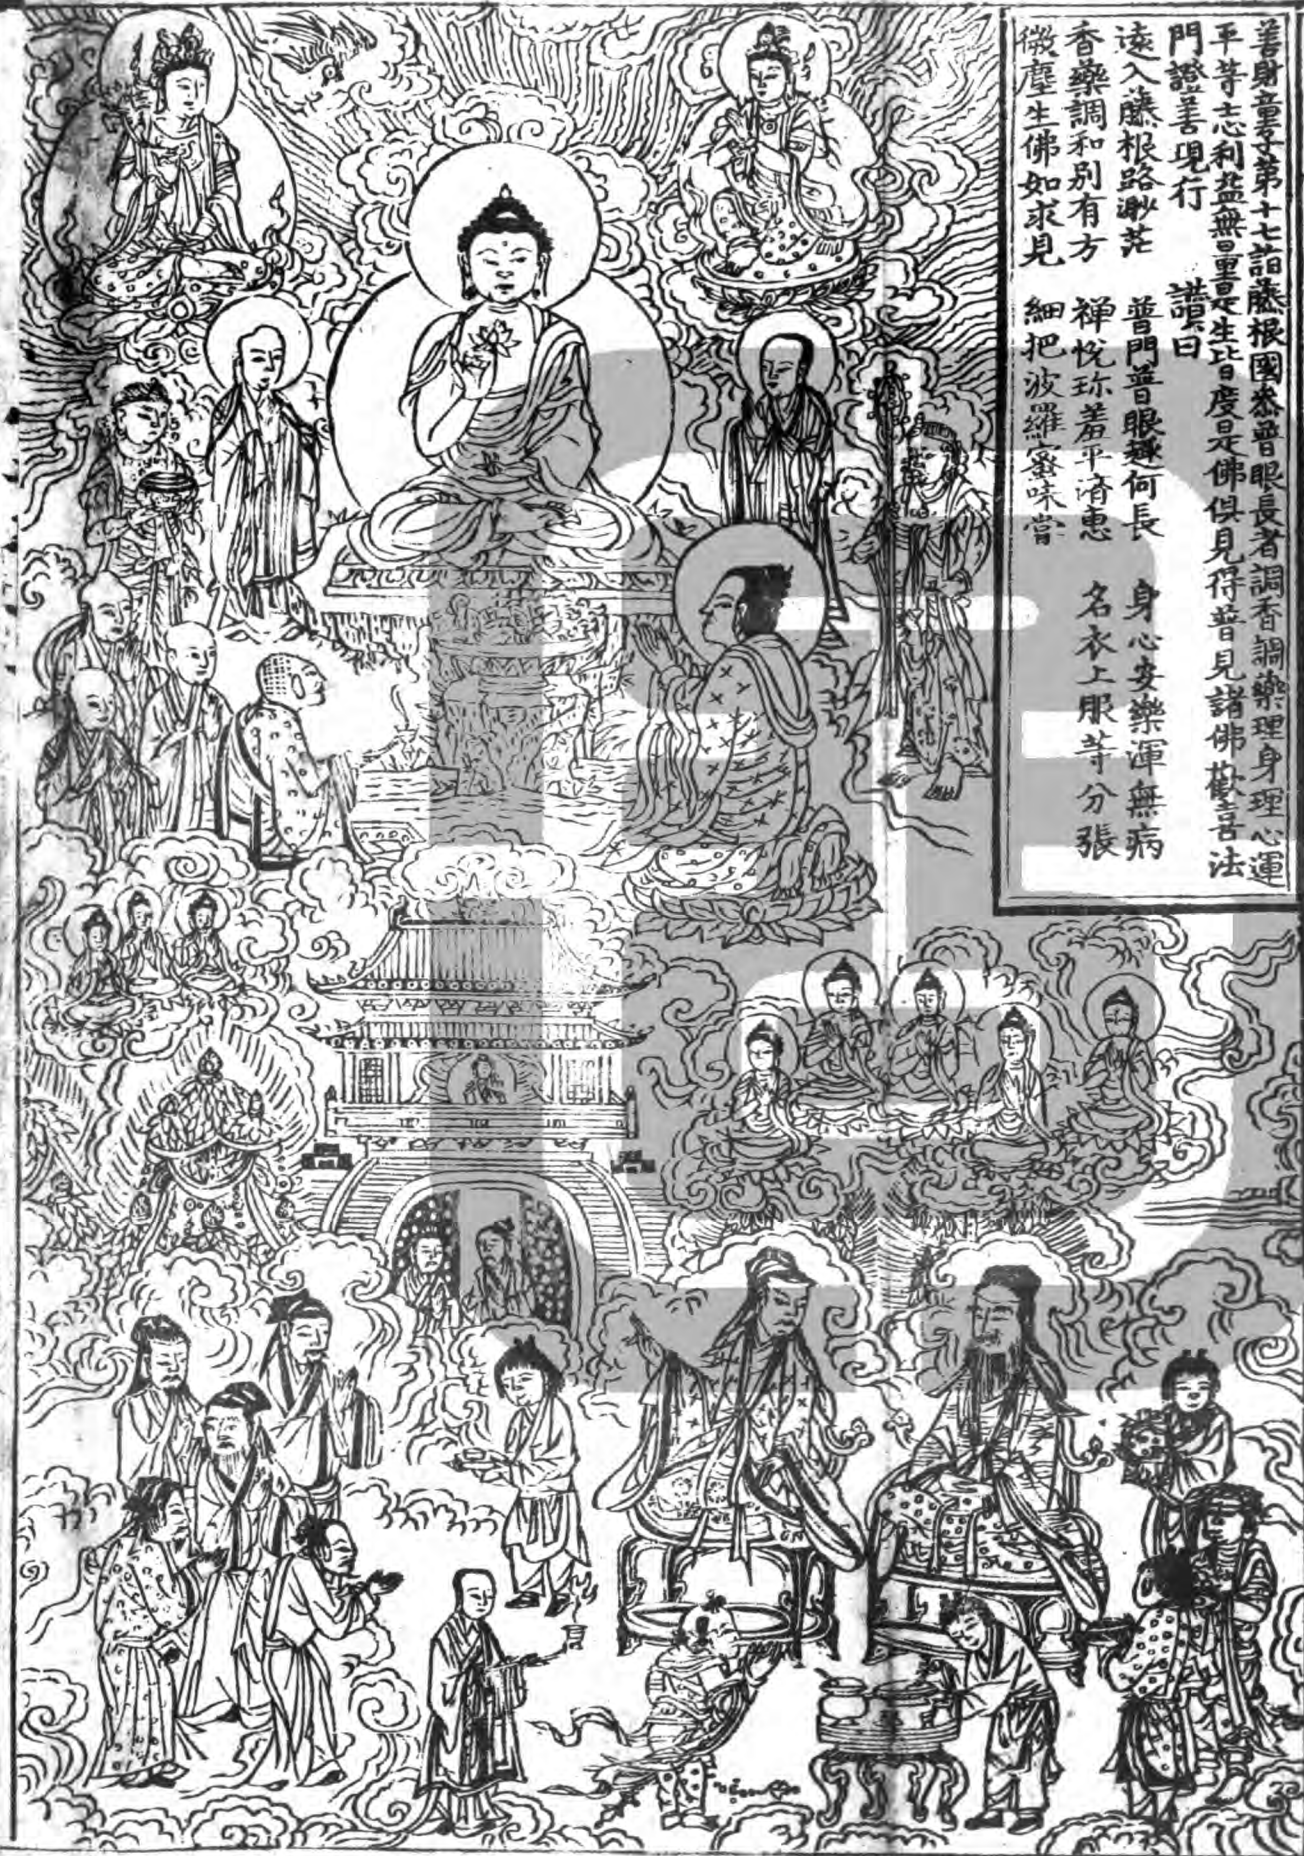 善財童子第十七詣藤根國叅普眼長者調香調藥理身理心運
平等志利益無量是生比日度是佛俱見得普見諸佛歡喜法
門證善現行　讃曰
遠入藤根路渺茫　普門普眼趣何長　身心安藥渾無病
香藥調和別有方　禅悅珎羞平濟惠　名衣上服等分張
微塵生佛如求見　細把波羅蜜味嘗